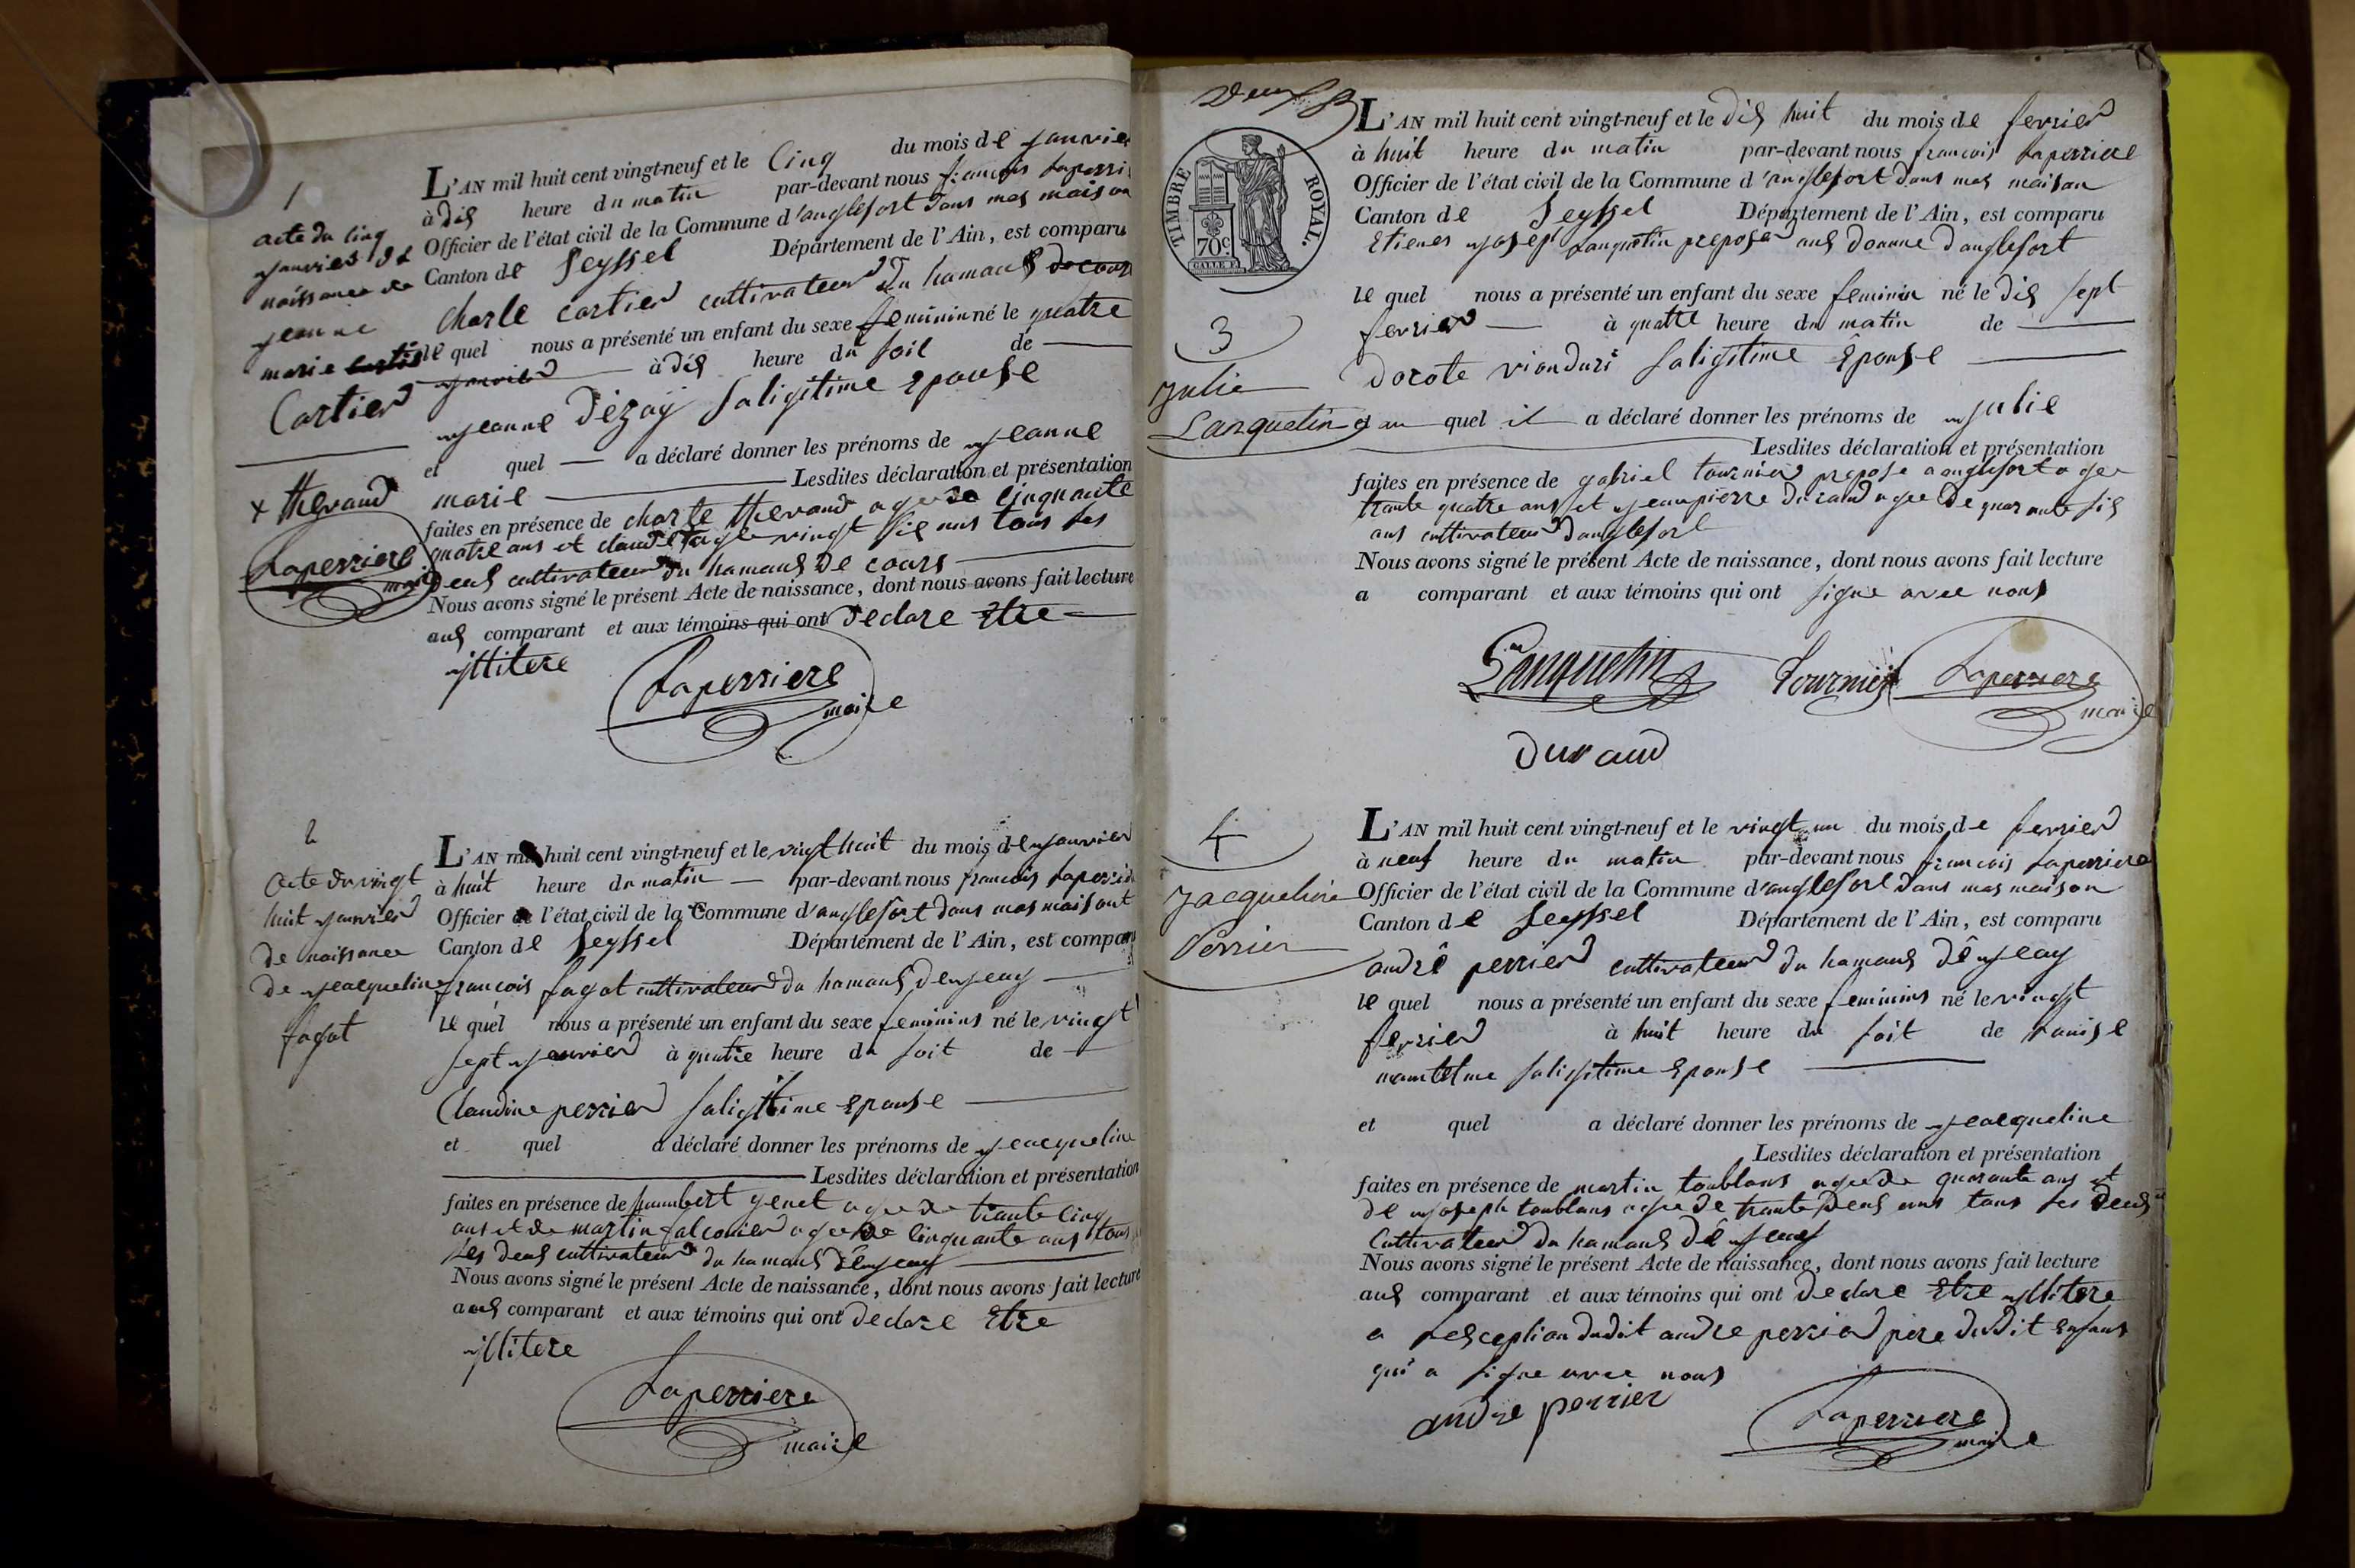 1
acte du cinq
janvier de
naissance de
jeanne
marie
Cartier
+ thevand
Laperriere
maire
L'AN mil huit cent vingt-neuf et le Cinq du mois de janvier
à dix heure du matin par-devant nous françois Laperri
Officier de l'état civil de la Commune d'anglefort dans mas maison
Canton de Seyssel Département de l'Ain, est comparu
Charle cartier cultivateur du hamaux de cours
le quel nous a présenté un enfant du sexe feminin né le quatre
janvier à dix heure du soil de
jeanne dézay saligitime epouse
et quel a déclaré donner les prénoms de jeanne
marie Lesdites déclaration et présentation
faites en présence de charle thevand agé de cinquante
quatre ans et claude vingt six ans tous les
deux cultivateur du hamaux de cours
Nous avons signé le présent Acte de naissance, dont nous avons fait lecture
aux comparant et aux témoins qui ont declare etre
illitere
Laperriere
maire
2
acte du vingt
huit janvier
de naissance
de jeacqueline
fagot
L'AN mil huit cent vingt-neuf et le vingt huit du mois de janvier
à huit heure du matin par-devant nous françois Laperrie
Officier de l'état civil de la Commune d'anglefort dans mas maisont
Canton de Seyssel Département de l'Ain, est comparu
françois fagot cultivateur du hamaux
le quel nous a présenté un enfant du sexe feminins né le vingt
sept janvier à quatre heure du soit de
Claudine perrier saligitime epouse
et quel a déclaré donner les prénoms de jeacqueline
Lesdites déclaration et présentation
faites en présence de humbert genet agé de trante cinq
ans et de martin falconier agé de cinquante ans tous
les deux cultivateur du hamaux
Nous avons signé le présent Acte de naissance, dont nous avons fait lecture
aux comparant et aux témoins qui ont declare etre
illitere
Laperriere
maire
Deux
TIMBRE ROYAL.
70c
3
Julie
Lanquetin
L'AN mil huit cent vingt-neuf et le dix huit du mois de fevrier
à huit heure du matin par-devant nous françois Laperriere
Officier de l'état civil de la Commune d'anglefort dans mas maison
Canton de Seyssel Département de l'Ain, est comparu
Etienes josept Lanquetin preposer aux douane d'anglefort
le quel nous a présenté un enfant du sexe feminin né le dix sept
fevrier à quatre heure du matin de
dorote vianduri saligitime épouse
et au quel il a déclaré donner les prénoms de julie
Lesdites déclaration et présentation
faites en présence de gabriel tournier prepose a anglefort agee
trante quatre ans et jeanpierre durand agee de quarante six
ans cultivateur d'anglefort
Nous avons signé le présent Acte de naissance, dont nous avons fait lecture
a comparant et aux témoins qui ont signe avec nous
Lanquetin Tournier Laperriere
maire
durand
4
Jacqueline
Perrier
L'AN mil huit cent vingt-neuf et le vingt un du mois de fevrier
à neuf heure du matin par-devant nous françois Laperriere
Officier de l'état civil de la Commune d'anglefort dans mas maison
Canton de Seyssel Département de l'Ain, est comparu
andré perrier cultivateur du hamaux
le quel nous a présenté un enfant du sexe feminins né le vingt
fevrier à huit heure du soit de
saligitime epouse
et quel a déclaré donner les prénoms de jeacqueline
Lesdites déclaration et présentation
faites en présence de martin toublans agé de quarante ans et
de joseph toublans agé de trante deux ans tous les deux
Cultivateur du hamaux
Nous avons signé le présent Acte de naissance, dont nous avons fait lecture
aux comparant et aux témoins qui ont declare etre illitere
a lesception dudit andre perrier pere dudit enfans
qui a signe avec nous
andre perrier
Laperriere
maire